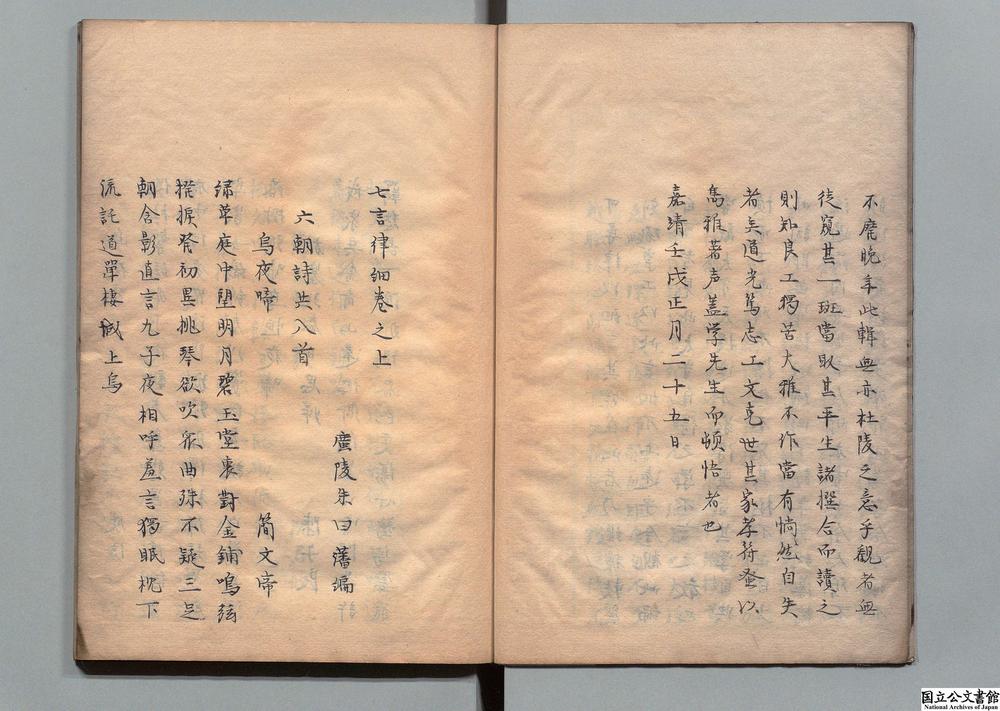 不廢晚年此輯無亦杜陵之意乎觀者無
徒窺其一斑當取其平生諸撰合而讀之
則知良工獨苦大雅不作當有惝然自失
者矣道光篤志工文克世其家孝符蚤以
雋雅著声蓋学先生而頓悟者也
嘉靖壬戌正月二十五日
七言律細卷之上
廣陵朱曰藩編
六朝詩共八首
烏夜啼 簡文帝
綠草庭中望明月碧玉堂裏對金鋪鳴弦
撥捩發初異挑琴欲吹衆曲殊不疑三足
朝含影直言九子夜相呼羞言獨眠枕下
流託道單棲城上烏
国立公文書館
National Archives of Japan